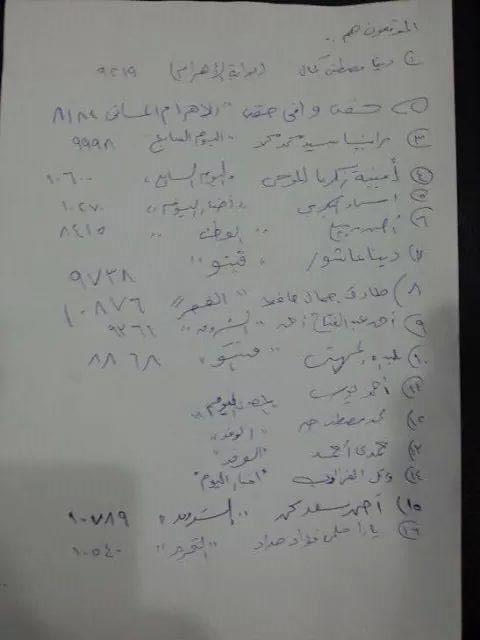 الموقعون هم ..
١) دينا مصطفى كمال (بوابة الأهرام) ٩٢١٩
٢) حنفي وافي حنفي "الأهرام المسائي" ٨١٨٤
٣) رانيا سيد محمد محمد "اليوم السابع" ٩٩٩٨
٤) أمنية زكريا الموجي "اليوم السابع" ١٠٦٠٠
٥) أسماء "أخبار اليوم" ١٠٢٧٠
٦) أحمد "الوطن" ٨٤١٥
٧) دينا عاشور "ڤيتو" ٩٧٣٨
٨) طارق جمال حافظ "الفجر" ١٠٨٧٦
٩) أحمد عبد الفتاح أحمد "الشروق" ٩٢٦١
١٠) "ڤيتو" ٨٨٦٨
١١) أحمد "المصري اليوم"
١٢) محمد مصطفى "الوفد"
١٣) حمدي أحمد "الوفد"
١٤) وائل "أخبار اليوم"
١٥) أحمد سعد محمد "الشروق" ١٠٧٨٩
١٦) يارا حلمي فؤاد حداد "التحرير" ١٠٥٤٠